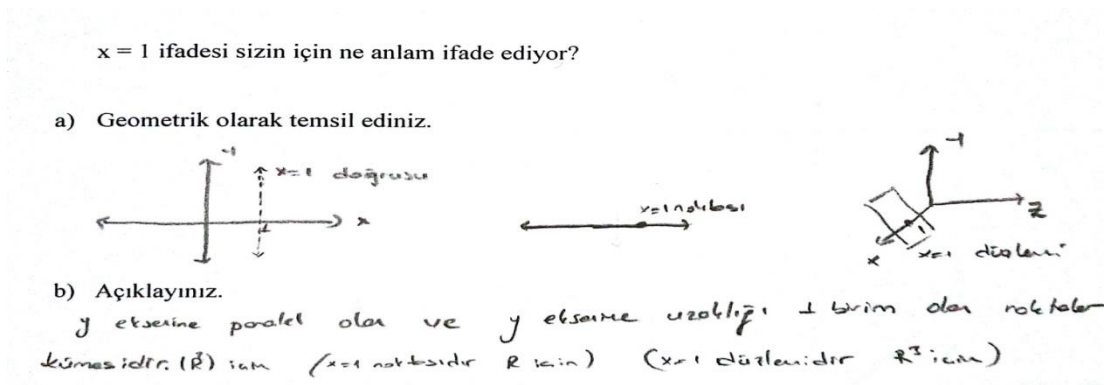 x = 1 ifadesi sizin için ne anlam ifade ediyor?
a) Geometrik olarak temsil ediniz.
y
x=1 doğrusu
1
x
x=1 noktası
y
z
x
1
x=1 düzlemi
b) Açıklayınız.
y eksenine paralel olan ve y eksenine uzaklığı 1 birim olan noktalar
kümesidir. (R²) için (x=1 noktasıdır R için) (x=1 düzlemidir R³ için)